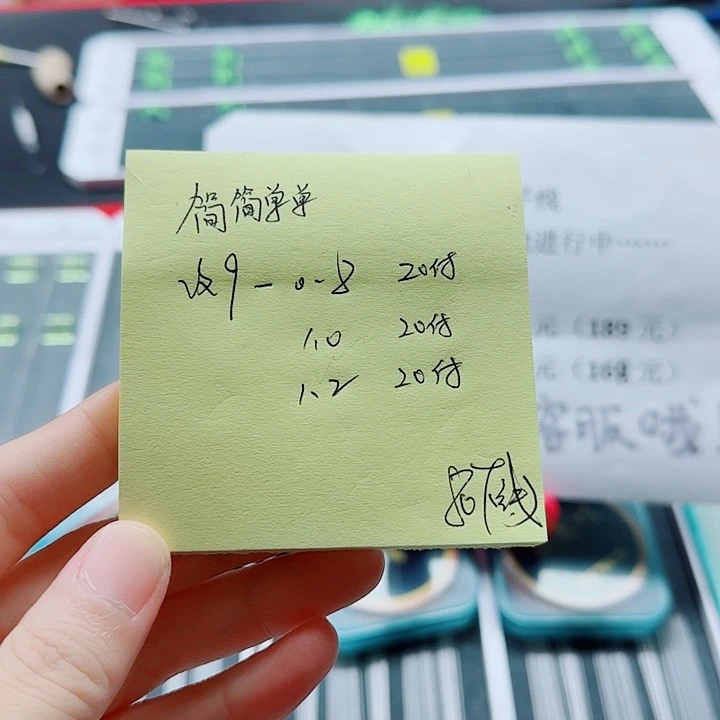 简简单单
改9-0.8 20付
1.0 20付
1.2 20付
线
进行中……
元（189元）
元（168元）
客服哦！